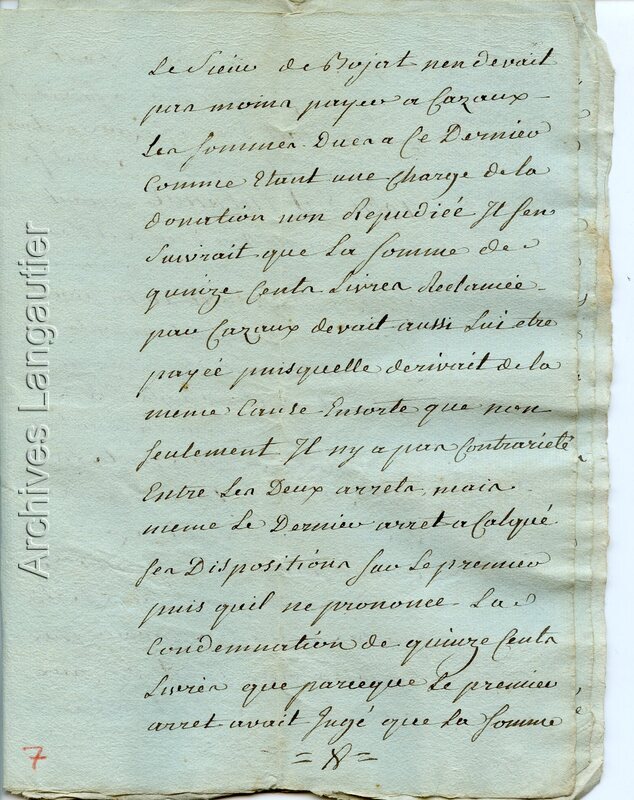 Le Sieur de Bojat n'en devait
pas moins payer a Cazaux
Les sommes Dues a Ce Dernier
Comme Etant une Charge de la
donation non Repudiée Il sen
Suivrait que La somme de
quinze Cents Livres Reclamée
par Cazaux devait aussi Lui etre
payéé puisquelle derivait de la
meme Cause Ensorte que non
seulement Il ny a pas Contrarieté
Entre Les Deux arrets, mais
meme Le Dernier arret a Calqué
ses Dispositions sur Le premier
puis quil ne prononce La
Condemnation de quinze Cents
Livres que parceque Le premier
arret avait Jugé que La somme
= 8 =
7
Archives Langautier